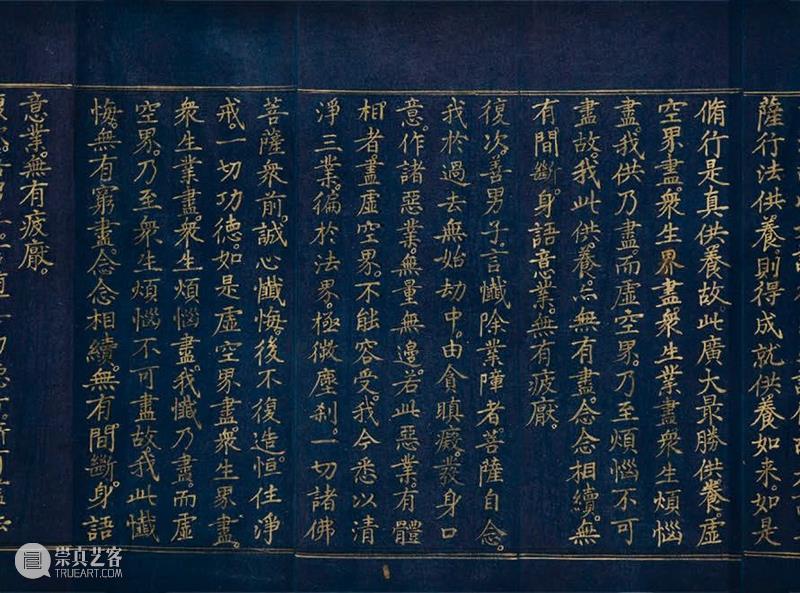 薩行法供養。則得成就供養如来。如是
脩行是真供養故。此廣大最勝供養。虛
空界盡。衆生界盡。衆生業盡。衆生煩惱
盡。我供乃盡。而虛空界。乃至煩惱不可
盡故。我此供養。亦無有盡。念念相續。無
有間斷。身語意業。無有疲厭。
復次。善男子。言懺除業障者。菩薩自念。
我於過去無始劫中。由貪瞋癡。發身口
意。作諸惡業。無量無邊。若此惡業。有體
相者。盡虛空界。不能容受。我今悉以清
淨三業。徧於法界。極微塵剎。一切諸佛
菩薩衆前。誠心懺悔。後不復造。恒住淨
戒。一切功德。如是虛空界盡。衆生界盡。
衆生業盡。衆生煩惱盡。我懺乃盡。而虛
空界。乃至衆生煩惱不可盡故。我此懺
悔。無有窮盡。念念相續。無有間斷。身語
意業。無有疲厭。
崇真艺客
TRUEART.COM